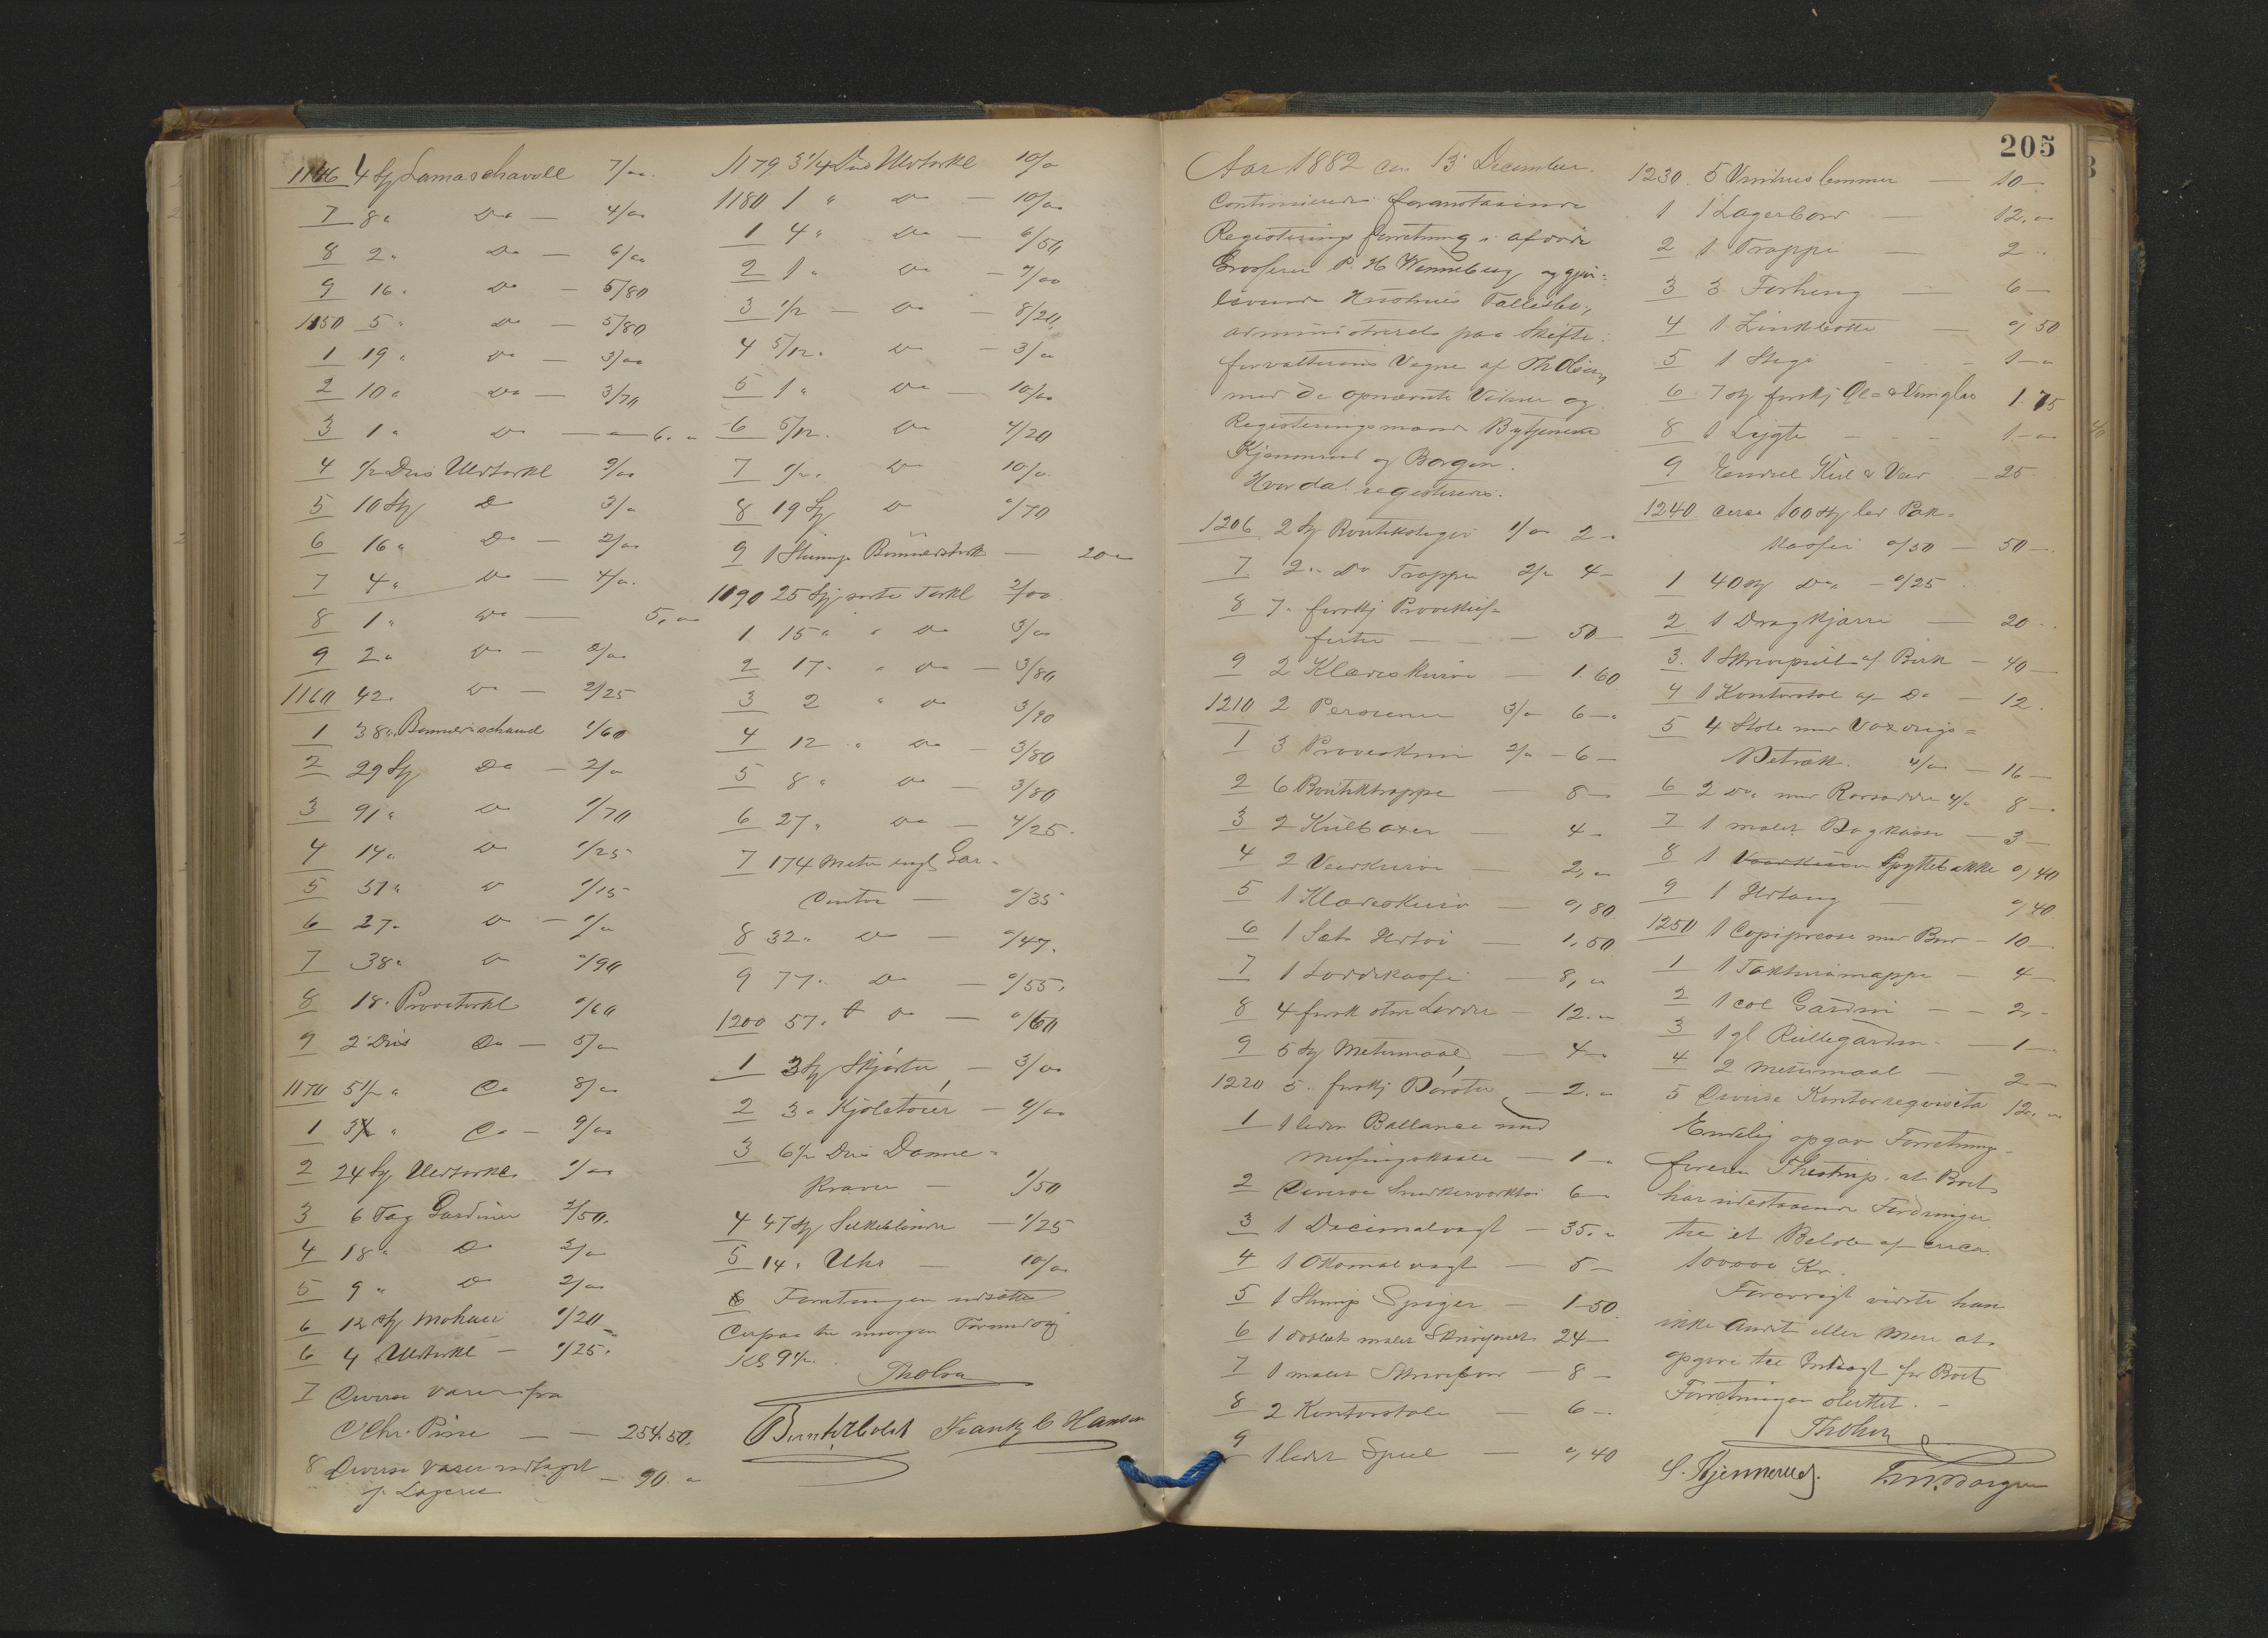 1146 4 St Lamaschavell 7/00
7 8 " Do — 4/00
8 2 " Do — 6/00
9 16 " Do — 5/80
1150 5 " Do — 5/80
1 19 " Do — 3/00
2 10 " Do — 3/70
3 1 " Do — 6. "
4 1/2 Dus Uldtørkl 9/00
5 10 St Do 3/"
6 16 " Do — 2/00
7 4 " Do — 4/".
8 1 " Do — 5, "
9 2 " Do — 2/00
1160 42 " Do — 2/25
1 38 " 1/60
2 29 St Do — 2/"
3 91 " Do 1/70
4 14 " Do 1/25
5 51 " Do 1/15
6 27 " Do — 1/"
7 38 " Do "/90
8 18 " Prøvetørkl "/60
9 2 Dus Do — 5/"
1170 5 1/2 " Do 8/00
1 " Do — 9/00
2 24 St Uldtørkl 1/00
3 6 Fag Gardiner 2/50.
4 18 " Do 3/"
5 9 " Do 2/00
6 12 St Mohair 1/20
6 4 Uldtørkl — 1/25.
7 Diverse Varer fra
Chr. — — 254.50.
8 Diverse Varer udtaget
af Lageret — 90. "
1179. 3 1/4 Dus Uldtørkl 10/"
1180 1 " Do — 10/00
1 4 " Do — 6/50
2 1 " Do — 7/00
3 1/2 — Do — 8/20
4 5/12 " Do — 3/"
5 1 " Do — 10/00
6 5/12 " Do 4/20
7 1/2 " Do 10/"
8 19 St Do "/70
9 1 Stump — 20 "
1190 25 St sorte Tørkl 2/00
1 15 " " Do 3/00
2 17 " " Do — 3/80
3 2 " Do 3/90
4 12 " Do — 3/80
5 8 " Do — 3/80
6 27 " Do — 4/25.
7 174 Meter engl Gar-
diner — "/35
8 32 " Do — "/47.
9 77 " Do — "/55.
1200 57 " Do — "/60
1 3 St Skjørter — 3/00
2 3 " Kjoletøier — 4/00
3 6 1/2 Dus Dame-
Kraver — 1/50
4 47 St Silkebinder — 1/25
5 14 " Uhr — 10/00
6 Forretningen udsattes
derpaa til imorgen Formiddag
Kl 9 1/2.
Th Olsen
Frantz C Hansen
205
Aar 1882 den 13 December
Continueredes foranstaaende
Registrerings forretning i afdøde
Grosserer P. H. Wenneberg og gjen-
levende Hustrues Fællesbo,
administreret paa Skifte-
forvalterens Vegne af Th Olsen
med de opnævnte Vidner og
Registreringsmænd Bytjenerne
Kjennerud og Borgen.
Hvorda registreredes.
1206 2 St Boutikstiger 1/00 2 "
7 2 " Do Trapper 2/" 4 —
8 7 " forskj Prøvekuf-
ferter — — 50 —
9 2 Klædeskurve — 1.60
1210 2 3/" 6 — "
1 3 2/" — 6 —
2 6 Boutiktrappe — 8 —
3 2 Kulboxer — 4 —
4 2 Vedkurve — 2, "
5 1 Klædeskurv — ", 80.
6 1 Sæt Ildtøi — 1.50
7 1 Loddekasse — 8, "
8 4 forsk store Lærder — 12. "
9 5 St Metermaal — 4 —
1220 5 " forskj Børster — 2. "
1 1 liden Ballance med
Messingskaale — 1 — "
2 Diverse Snedkerværktøi 6 —
3 1 Decimalvægt — 35. "
4 1 Ottomal vægt — 5 —
5 1 Stump Spiger — 1.50
6 1 dobbelt malet Skrivepult 24 —
7 1 malet Skrivebord — 8 —
8 2 Kontorstole — 6 —
9 1 lidet Speil — ", 40
1230. 5 Vindueslemmer — 10 —
1 1 Lagerbord — 12. "
2 1 Trappe — 2 "
3 3 Forheng — 6 —
4 1 Zinkbøtte — ", 50
5 1 Stige — 1 — "
6 7 St forskj Øl- & Vinglas 1.75
8 1 Lygte — — — 1 — "
9 Endel Kul & Ved — 25
1240 circa 100 St led Pak-
kasser "/50 — 50 —
1 40 St Do — "/25
2 1 Dragkjærre — 20 —
3. 1 Skrivepult af Birk — 40 —
4 1 Kontorstol af Do — 12.
5 4 Stole med Voxdugs-
Betræk. 4/" — 16 —
6 2 Do med Rørsæde 4/" 8 —
7 1 malet Bogkasse — 3 —
8 1 Spyttebakke ", 40
9 1 Ildtang — ", 40
1250 1 Copipresse med Bord — 10 —
1 1 Fakturamappe — 4 —
2 1 col Gardin — — 2, —
3 1 gl Rullegardin — 1 —
4 2 Metermaal — 2 —
5 Diverse Kontorreqvisita 12. "
Endelig opgav Forretnings-
føreren Thestrup, at Boet
har udestaaende Fordringer
til et Beløb af circa
100000 Kr.
Forøvrigt vidste han
ikke Andet eller Mere at
opgive til Indtægt for Boet
Forretningen sluttet. —
Th Olsen
S. Kjennerud. Borgen